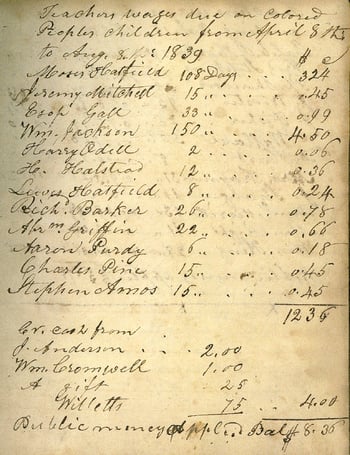 Teachers wages due on colored
Peoples children from April 8th
to Aug. 1839 $ c
Moses Hatfield 108 Days . . 3 24
Jeremy Mitchell 15 " . . . .45
Esop Gall 33 " . . . 0.99
Wm. Jackson 150 " . . . 4.50
Harry Odell 2 . . . 0.06
H. Halstead 12 " . . . 0.36
Lewis Hatfield 8 " . . . 0.24
Richd. Barker 26 " . . . 0.78
Abrm Griffin 22 " . . . 0.66
Aaron Purdy 6 " . . . 0.18
Charles Pine 15 " . . . 0.45
Stephen Amos 15 " . . . 0.45
1236
Cr. cash from
J. Anderson . . . 2.00
Wm. Cromwell 1.00
A gift 25
Willetts 75 . . 4.00
Public money applied Bal $ 8.36